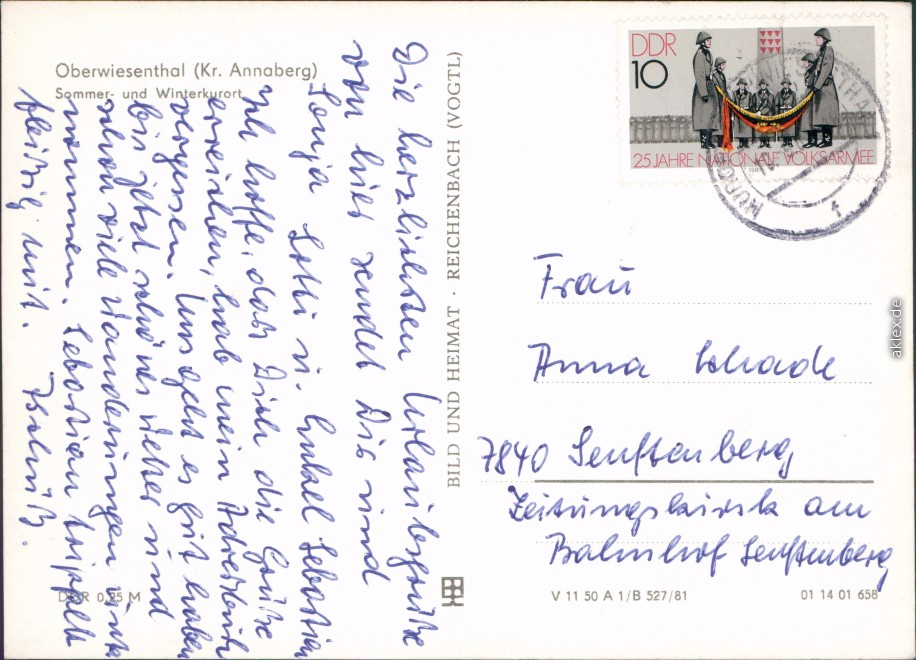 Oberwiesenthal (Kr. Annaberg)
Sommer- und Winterkurort
Die herzlichsten Urlaubsgrüße
von hier sendet Dir und
Sonja Lotti u. Enkel Sebastian
Ich hoffe, das Dich die Grüße
erreichen, hab mein Adreßbuch
vergessen. Uns geht es gut haben
bis jetzt schönes Wetter und
schon viele Wanderungen unter
nommen. Sebastian trippelt
fleißig mit. Tschüß.
DDR 0,25 M
BILD UND HEIMAT · REICHENBACH (VOGTL)
DDR
10
25 JAHRE NATIONALE VOLKSARMEE
Frau
Anna Schade
7840 Senftenberg
Zeitungskiosk am
Bahnhof Senftenberg
V 11 50 A 1/B 527/81
01 14 01 658
akpool.de